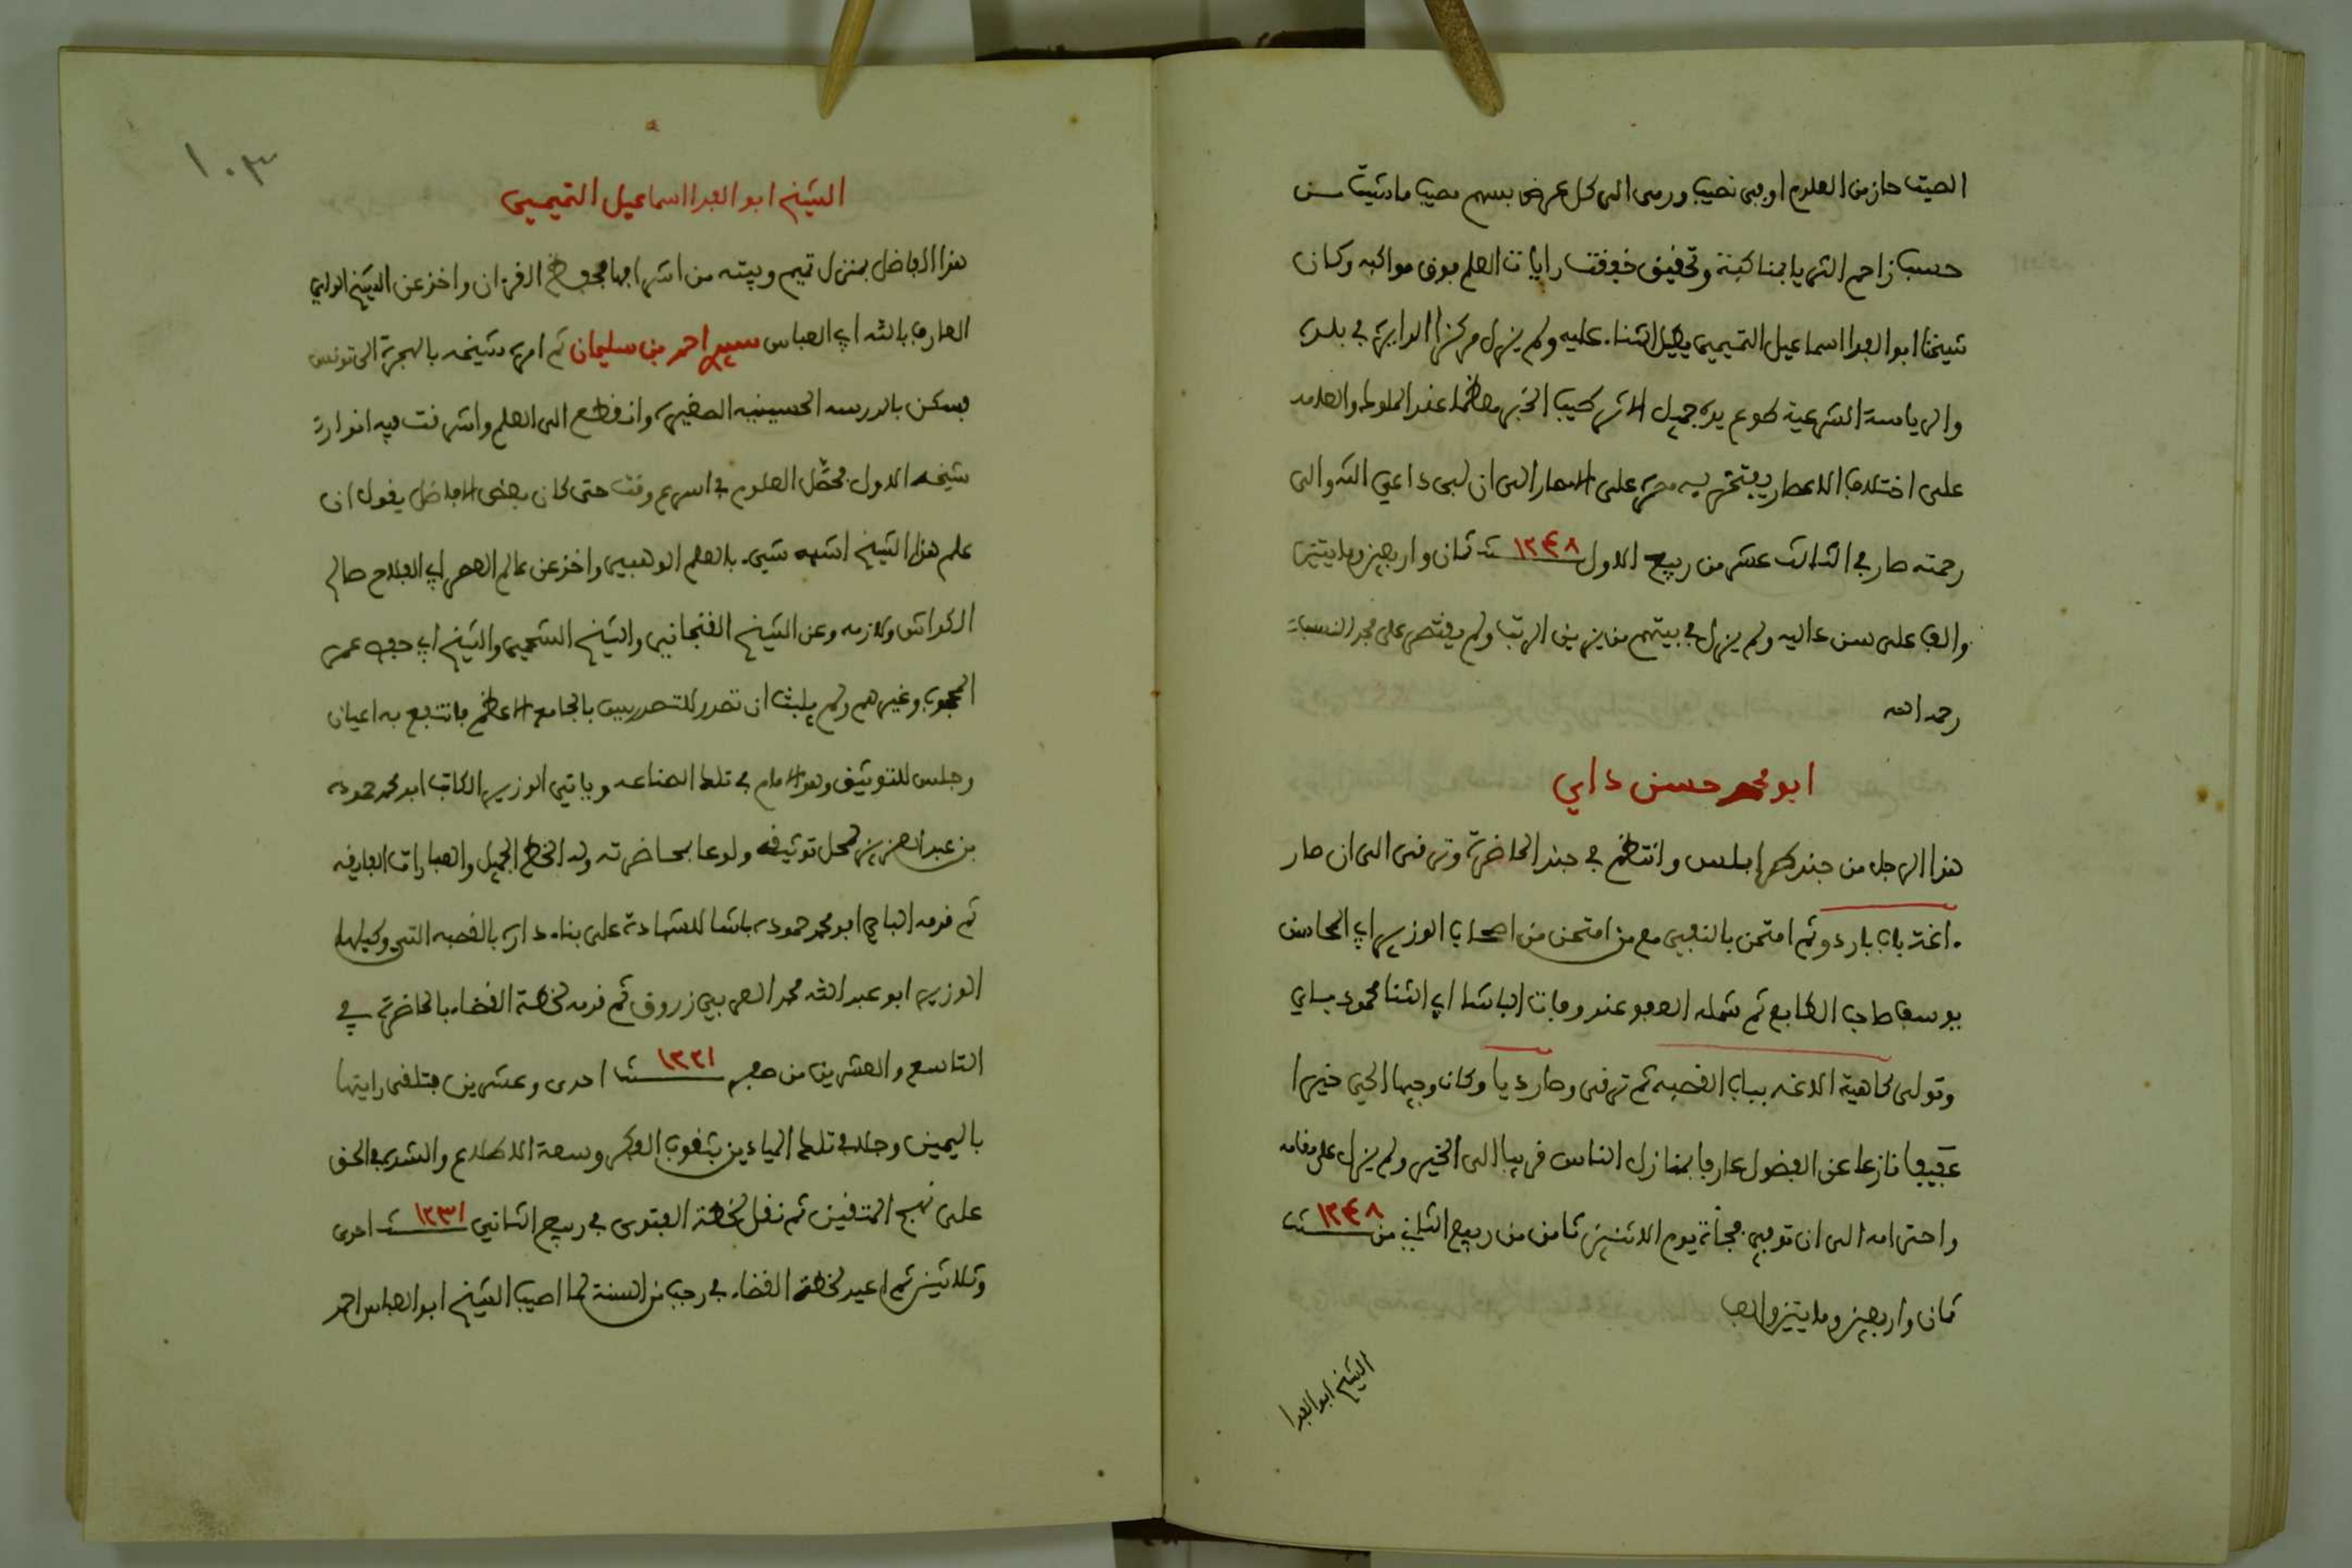 الصيت حاز من العلوم اوفى نصيب ورمى الى كل غرض بسهم مصيب ما شيت من
حسب زاحم الثريا بمناكبه وتحقيق خفقت رايات العلم فوق مواكبه وكان
شيخنا ابو الفدا اسماعيل التميمي يطيل الثناء عليه ولم يزل مركز الدايرة في بلده
والرياسة الشرعية طوع يده جميل الاثر طيب الخبر معظما عند الملوك والعامه
على اختلاف الاعصار يفتخر به مصره على الامصار الى ان لبى داعي الله والى
رحمته صار في الثالث عشر من ربيع الاول سنة ١٢٤٨ ثمان واربعين ومايتين
والف على سن عاليه ولم يزل في بيتهم من يزين الرتب ولم يقتصر على مجرد النسب
رحمه الله
ابو محمد حسن داي
هذا الرجل من جند طرابلس وانتظم في جند الحاضرة وترقى الى ان صار
اغة باب باردو ثم امتحن بالنفي مع من امتحن من اصحاب الوزير ابي المحاسن
يوسف صاحب الطابع ثم شمله العفو عند وفات الباشا ابي الثنا محمود باي
وتولى كاهية الاغه بباب القصبه ثم ترقى وصار دايا وكان وجيها الحي خيرا
عفيفا نازعا عن الفضول عارفا بمنازل الناس قريبا الى الخير ولم يزل على مقامه
واحترامه الى ان توفي فجأة يوم الاثنين ثامن من ربيع الثاني من سنة ١٢٤٨
ثمان واربعين ومايتين والف
الشيخ ابو الفدا
١٠٣
الشيخ ابو الفدا اسماعيل التميمي
هذا الفاضل بمنزل تميم وبيته من اشرافها فحفظ القرءان واخذ عن الشيخ الولي
العارف بالله ابي العباس سيدي احمد بن سليمان ثم امره شيخه بالهجرة الى تونس
فسكن بالمدرسه الحسينيه الصغيره وانقطع الى العلم واشرقت فيه انوار
شيخه الاول فحصّل العلوم في اسرع وقت حتى كان بعض الافاضل يقول ان
علم هذا الشيخ اشبه شيء بالعلم الوهبي واخذ عن عالم العصر ابي الفلاح صالح
الكواش ولازمه وعن الشيخ الفنجاني والشيخ الشحمي والشيخ ابي حفص عمر
المحجوب وغيرهم ولم يلبث ان تصدر للتدريس بالجامع الاعظم فانتفع به اعيان
وجلس للتوثيق وهو الامام في تلك الصناعه وياتي الوزير الكاتب ابو محمد حموده
بن عبد العزيز لمحل توثيقه ولوعا بمحاضرته وله الخط الجميل والعبارات الفايقه
ثم قدمه الباي ابو محمد حموده باشا للشهادة على بناء داره بالقصبه التي وكيلها
الوزير ابو عبد الله محمد العربي زروق ثم قدمه لخطة القضاء بالحاضرة في
التاسع والعشرين من صفر سنة ١٢٢١ احدى وعشرين فتلقى رايتها
باليمين وجال في تلك الميادين بثقوب الفكر وسعة الاطلاع والشدة في الحق
على نهج المتقين ثم نقل لخطة الفتوى في ربيع الثاني سنة ١٢٣١ احدى
وثلاثين ثم اعيد لخطة القضاء في رجب من السنة لما اصيب الشيخ ابو العباس احمد